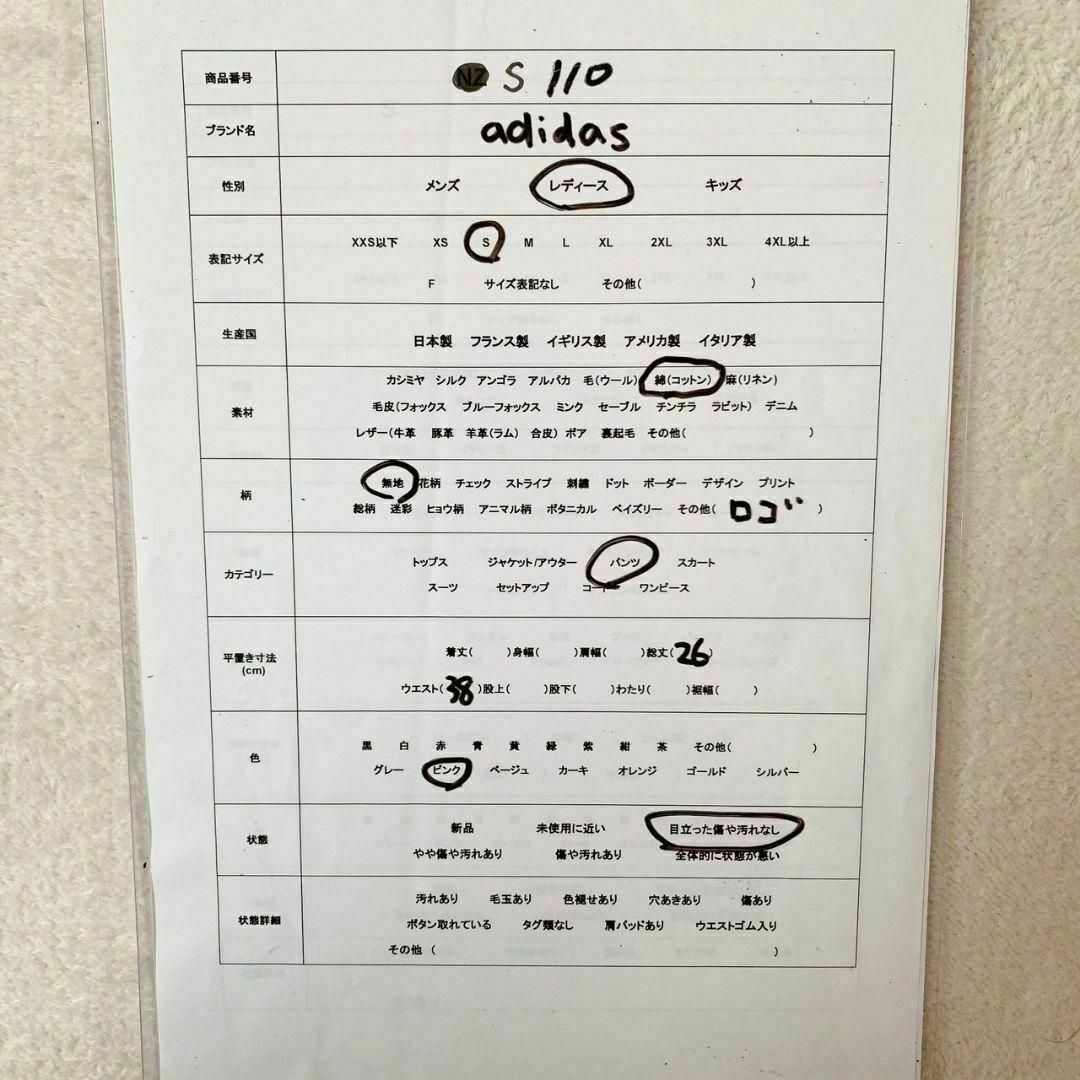 商品番号 NZ S 110
ブランド名 adidas
性別 メンズ レディース キッズ
表記サイズ XXS以下 XS S M L XL 2XL 3XL 4XL以上
F サイズ表記なし その他( )
生産国 日本製 フランス製 イギリス製 アメリカ製 イタリア製
素材 カシミヤ シルク アンゴラ アルパカ 毛(ウール) 綿(コットン) 麻(リネン)
毛皮(フォックス ブルーフォックス ミンク セーブル チンチラ ラビット) デニム
レザー(牛革 豚革 羊革(ラム) 合皮) ボア 裏起毛 その他( )
柄 無地 花柄 チェック ストライプ 刺繍 ドット ボーダー デザイン プリント
総柄 迷彩 ヒョウ柄 アニマル柄 ボタニカル ペイズリー その他( ロゴ )
カテゴリー トップス ジャケット/アウター パンツ スカート
スーツ セットアップ コート ワンピース
平置き寸法(cm) 着丈( )身幅( )肩幅( )総丈(26)
ウエスト(38)股上( )股下( )わたり( )裾幅( )
色 黒 白 赤 青 黄 緑 紫 紺 茶 その他( )
グレー ピンク ベージュ カーキ オレンジ ゴールド シルバー
状態 新品 未使用に近い 目立った傷や汚れなし
やや傷や汚れあり 傷や汚れあり 全体的に状態が悪い
状態詳細 汚れあり 毛玉あり 色褪せあり 穴あきあり 傷あり
ボタン取れている タグ類なし 肩パッドあり ウエストゴム入り
その他 ( )